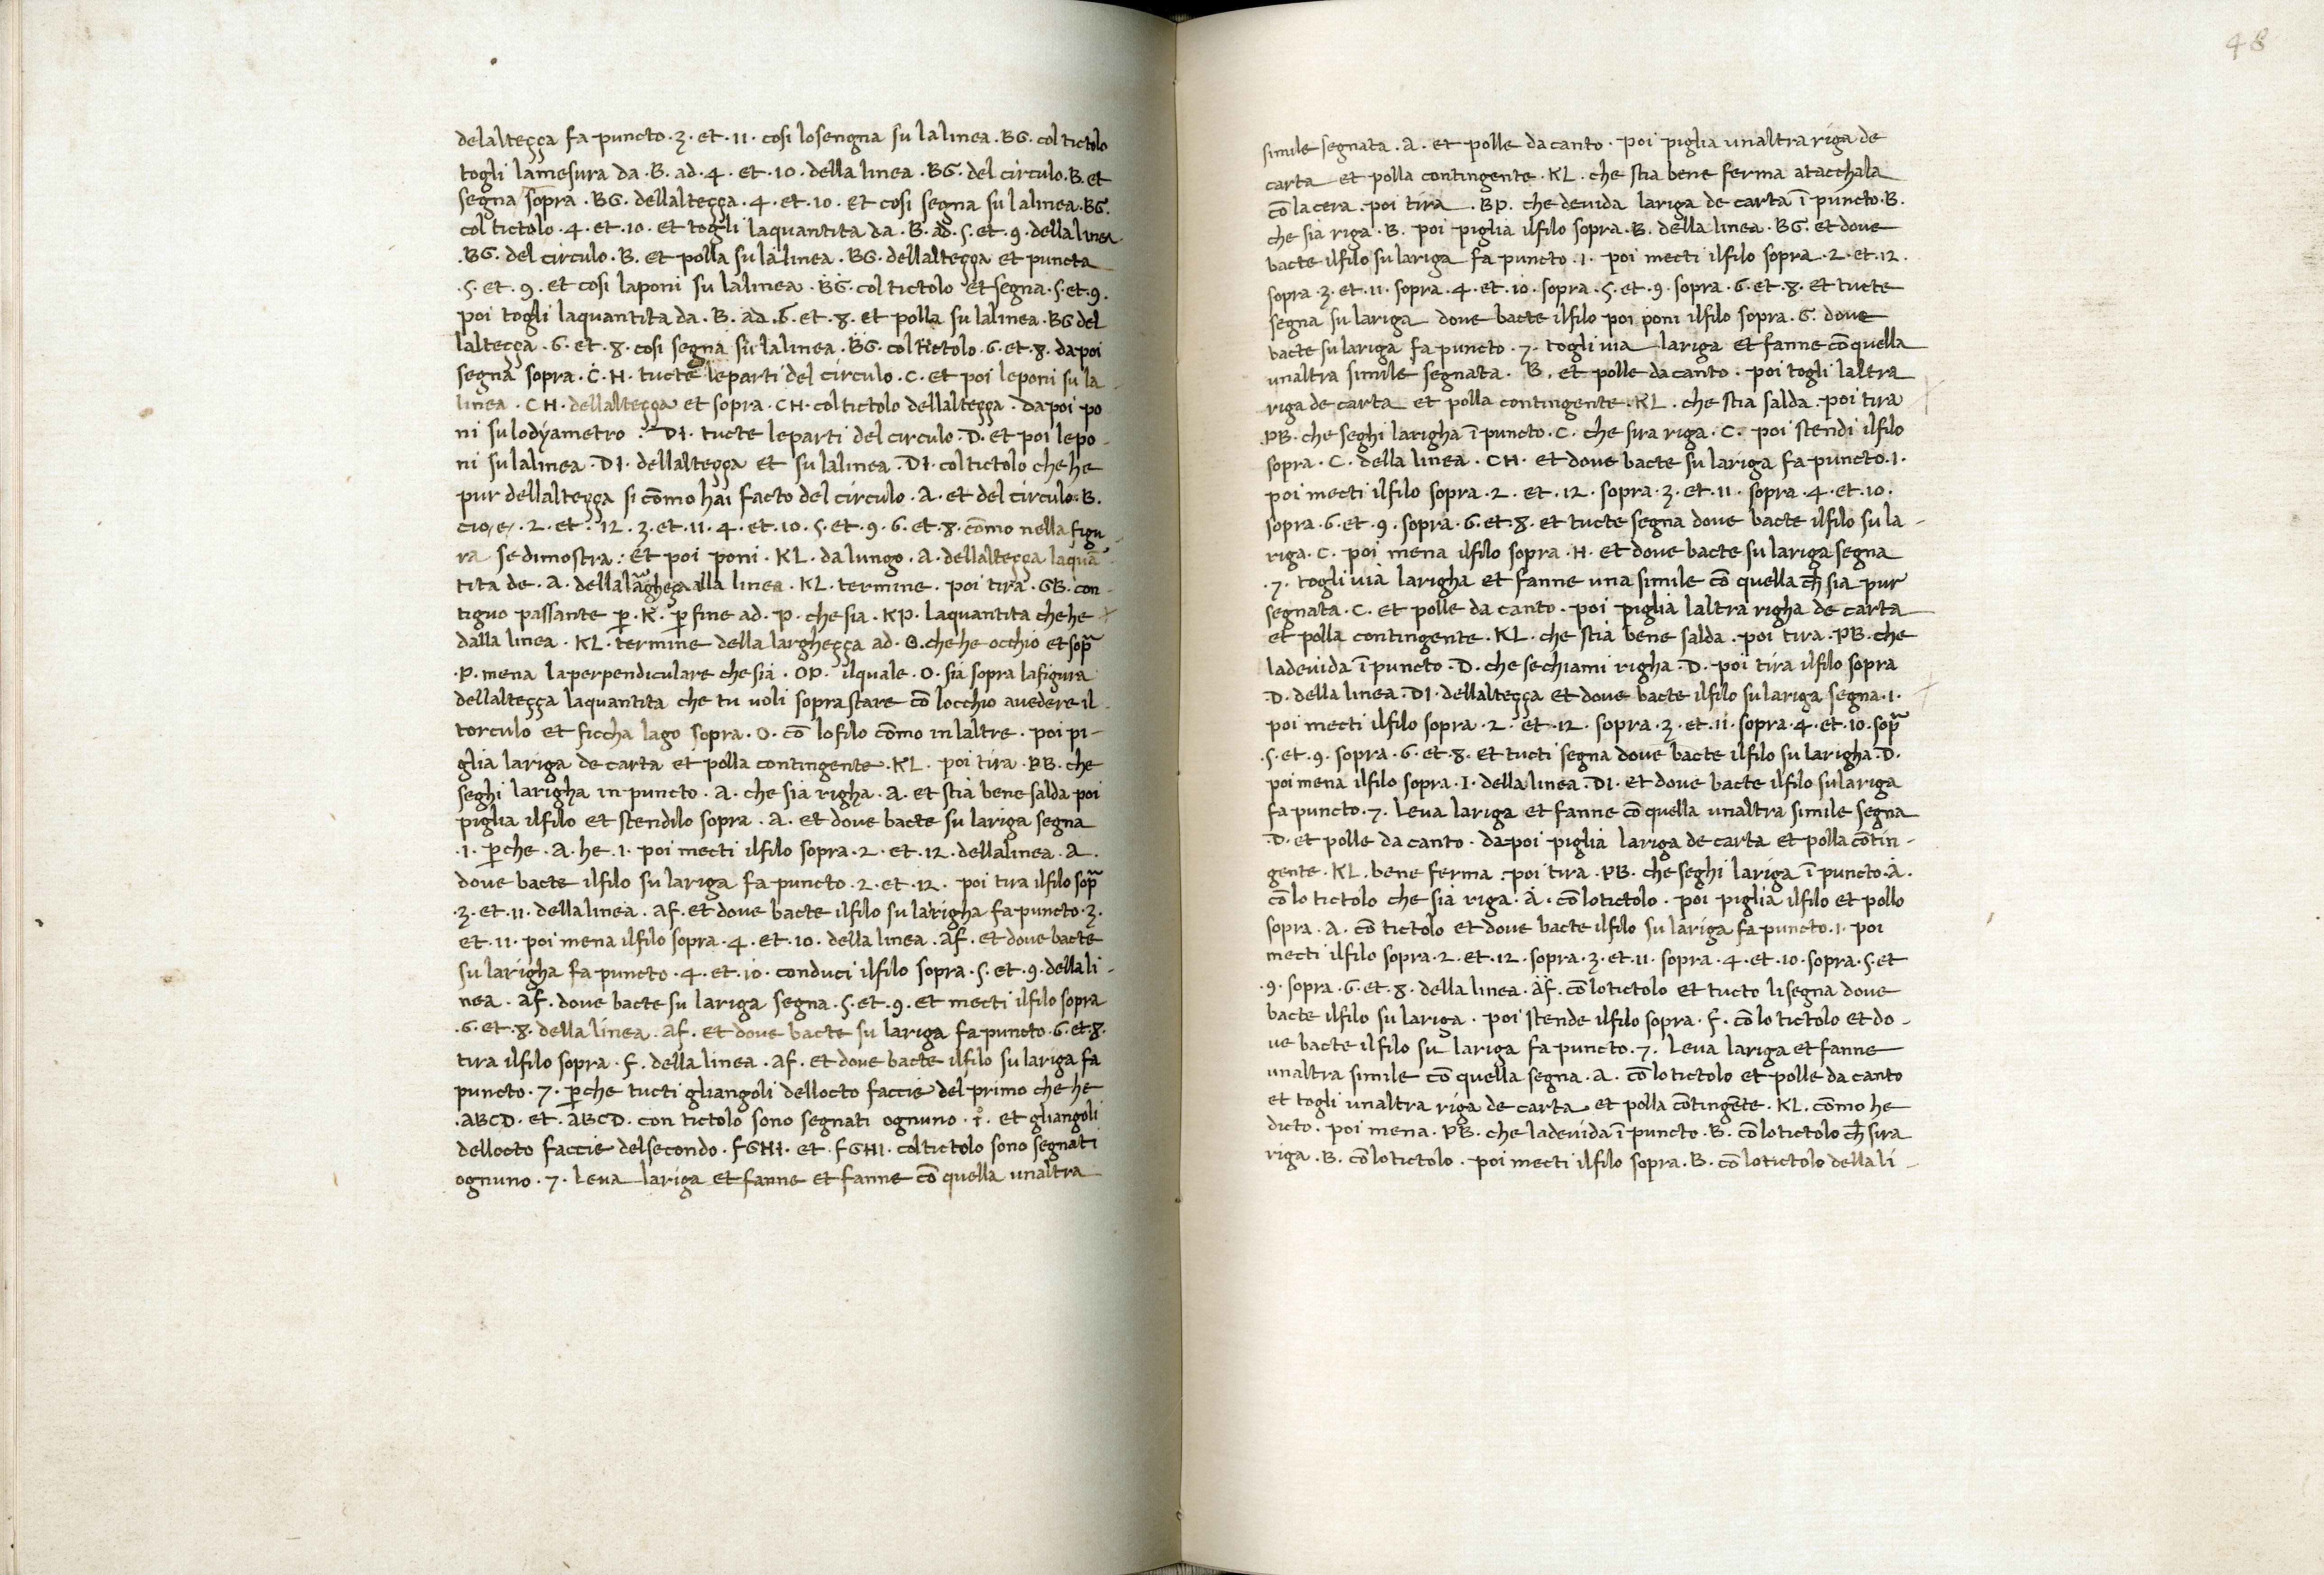 delalteçça fa puncto ·3· et ·11· cosi losengna su lalinea ·BG· col tictolo
togli lamesura da ·B· ad ·4· et ·10· della linea ·BG· del circulo ·B· et
segna sopra ·BG· dellalteçça ·4· et ·10· et cosi segna su lalinea ·BG·
col tictolo ·4· et ·10· et togli laquantita da ·B· ad ·5· et ·9· della linea
·BG· del circulo ·B· et polla su lalinea ·BG· dellalteçça et puncta
·5· et ·9· et cosi laponi su lalinea ·BG· col tictolo et segna ·5· et ·9·
poi togli laquantita da ·B· ad ·6· et ·8· et polla su lalinea ·BG del
lalteçça ·6· et ·8· cosi segna su lalinea ·BG· col tictolo ·6· et ·8· dapoi
segna sopra ·C·H· tucte leparti del circulo ·C· et poi leponi su la
linea ·CH· dellalteçça et sopra ·CH· col tictolo dellalteçça · dapoi po
ni su lodyametro · DI· tucte leparti del circulo ·D· et poi lepo-
ni su lalinea ·DI· dellalteçça et su lalinea ·DI· col tictolo che he
pur dellalteçça si cōmo hai facto del circulo ·A· et del circulo ·B·
cio/e/ ·2· et ·12·3· et ·11·4· et ·10·5· et ·9·6· et ·8· cōmo nella figu
ra se dimostra · et poi poni ·KL· da lungo ·A· dellalteçça laquā
tita de ·A· della lāgheça alla linea ·KL· termine · poi tira ·GB· con-
tiguo passante p̱ ·K· p̱ fine ad ·P· che sia ·KP· laquantita che he
dalla linea ·KL· termine della larghecça ad ·O· che he occhio et sop̄
·P· mena laperpendiculare che sia ·OP· ilquale ·O· sia sopra lafigura
dellalteçça laquantita che tu uoli soprastare cō locchio avedere il
torculo et ficcha lago sopra ·O· cō lo filo cōmo in laltre · poi pi-
glia lariga de carta et polla contingente ·KL· poi tira ·PB· che
seghi larigha in puncto ·A· che sia righa ·A· et stia bene salda poi
piglia ilfilo et stendilo sopra ·A· et dove bacte su lariga segna
·1· p̱che ·A· he ·1· poi mecti ilfilo sopra ·2· et ·12· dellalinea ·A·
dove bacte ilfilo su lariga fa puncto ·2· et ·12· poi tira ilfilo sop̄
·3· et ·11· dellalinea ·AF· et dove bacte ilfilo su larigha fa puncto ·3·
et ·11· poi mena ilfilo sopra ·4· et ·10· della linea ·AF· et dove bacte
su larigha fa puncto ·4· et ·10· conduci ilfilo sopra ·5· et ·9· della li-
nea ·AF· dove bacte su lariga segna ·5· et ·9· et mecti ilfilo sopra
·6· et ·8· della linea ·AF· et dove bacte su lariga fa puncto ·6· et ·8·
tira ilfilo sopra ·F· della linea ·AF· et dove bacte ilfilo su lariga fa
puncto ·7· p̱che tucti gliangoli dellocto faccie del primo che he
·ABCD· et ·ABCD· con tictolo sono segnati ognuno ·1· et gliangoli
dellocto faccie del secondo ·FGHI· et ·FGHI· col tictolo sono segnati
ognuno ·7· Leva lariga et fanne et fanne cō quella unaltra
48
simile segnata ·A· et polle da canto · poi piglia unaltra riga de
carta et polla contingente ·KL· che stia bene ferma atacchala
cō la cera · poi tira ·BP· che devida lariga de carta ī puncto ·B·
che sia riga ·B· poi piglia ilfilo sopra ·B· della linea ·BG· et dove
bacte ilfilo su lariga fa puncto ·1· poi mecti ilfilo sopra ·2· et ·12·
sopra ·3· et ·11· sopra ·4· et ·10· sopra ·5· et ·9· sopra ·6· et ·8· et tucte
segna su lariga dove bacte ilfilo poi poni ilfilo sopra ·G· dove
bacte su lariga fa puncto ·7· togli via lariga et fanne cō quella
unaltra simile segnata · B· et polle da canto · poi togli laltra
riga de carta et polla contingente ·KL· che stia salda · poi tira
·PB· che seghi larigha ī puncto ·C· che sira riga ·C· poi stendi ilfilo
sopra ·C· della linea ·CH· et dove bacte su lariga fa puncto ·1·
poi mecti ilfilo sopra ·2· et ·12· sopra ·3· et ·11· sopra ·4· et ·10·
sopra ·6· et ·9· sopra ·6· et ·8· et tucte segna dove bacte ilfilo su la-
riga ·C· poi mena ilfilo sopra ·H· et dove bacte su lariga segna
·7· togli via larigha et fanne una simile cō quella cħ sia pur
segnata ·C· et polle da canto · poi piglia laltra righa de carta
et polla contingente ·KL· che stia bene salda · poi tira ·PB· che
ladevida ī puncto ·D· che se chiami righa ·D· poi tira ilfilo sopra
·D· della linea ·DI· dellalteçça et dove bacte ilfilo su lariga segna ·1·
poi mecti ilfilo sopra ·2· et ·12· sopra ·3· et ·11· sopra ·4· et ·10· sop̄
·5· et ·9· sopra ·6· et ·8· et tucti segna dove bacte ilfilo su larigha ·D·
poi mena ilfilo sopra ·I· della linea ·DI· et dove bacte ilfilo su lariga
fa puncto ·7· Leva lariga et fanne cō quella unaltra simile segna
·D· et polle da canto · da poi piglia lariga de carta et polla cōtin-
gente ·KL· bene ferma · poi tira ·PB· che seghi lariga ī puncto ·A·
cō lo tictolo che sia riga ·A· cō lo tictolo · poi piglia ilfilo et pollo
sopra ·A· cō tictolo et dove bacte ilfilo su lariga fa puncto ·1· poi
mecti ilfilo sopra ·2· et ·12· sopra ·3· et ·11· sopra ·4· et ·10· sopra ·5· et
·9· sopra ·6· et ·8· della linea ·AF· cō lo tictolo et tucto li segna dove
bacte ilfilo su lariga · poi stende ilfilo sopra ·F· cō lo tictolo et do-
ue bacte ilfilo su lariga fa puncto ·7· Leva lariga et fanne
unaltra simile cō quella segna ·A· cō lo tictolo et polle da canto
et togli unaltra riga de carta et polla cōtingēte ·KL· cōmo he
dicto · poi mena ·PB· che ladevida ī puncto ·B· cō lo tictolo cħ sira
riga ·B· cō lo tictolo · poi mecti ilfilo sopra ·B· cō lo tictolo della li-